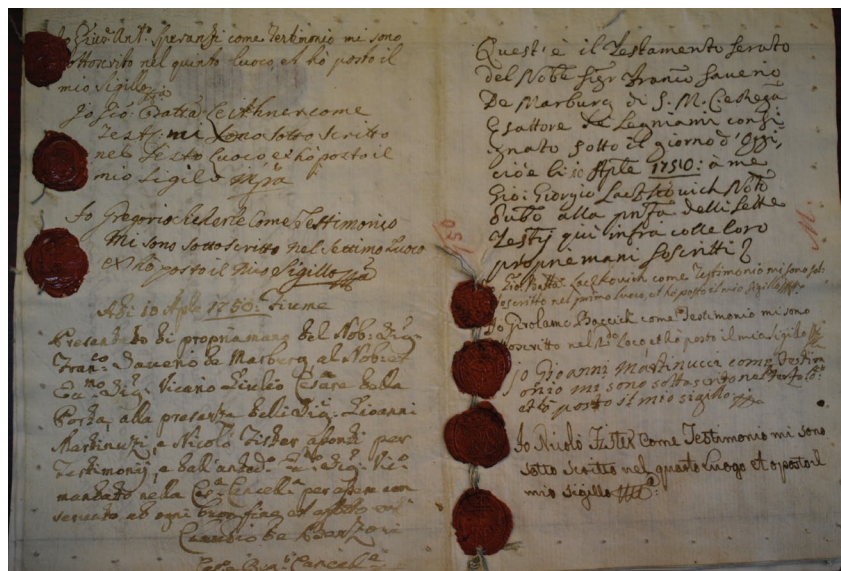 Io Giuse: Ant:o Speranzi come Testimonio mi sono
sottoscrito nel quinto luoco, et hò posto il
mio Sigillo
Io Gio: Batta Leithner come
Test: mi sono sotto scritto
nel sesto luoco, et hò posto il
mio sigilo
Io Gregorio come Testimonio
Mi sono sottoscritto nel settimo Luoco
et hò posto il mio Sigillo
Adi 10 Aple 1750: Fiume
Presentato di propria mano dal Nob: Sig:
Fran:co Saverio de Marburg al Nob:
Sig:r Vicario Giulio Cesare della
Porta, alla presenza delli Sig:i Gioanni
Martinuzzi, e Nicolò Tister assonti per
Testimonij, e dall'antedo: Sig:r Vic:o
mandato nella Ces:a Cancell:a per essere con
servato ad ogni buon fine, et effetto
Claudio de
Cancell:a
Quest' è il Testamento serato
del Nobe Sigr Franco Saverio
De Marburg di S. M. Ces Rega
Esattore de Legniami consi
gnato sotto il giorno d'oggi
cioè li 10 Aple 1750: à me
Gio: Giorgio Lazkovich Noto
Pubo alla pnza delli sette
Testij qui infra colle loro
proprie mani soscritti
Io Gio: Batta: Lazkovich come Testimonio mi sono sot:
toscritto nel primo luoco, et hò posto il mio Sigillo
Io Girolamo Bacich come Testimonio mi sono
sottoscritto nel 2do Loco et hò posto il mio Sigillo
Io Gioanni Martinucci come Testim
onio mi sono sottoscrito nel Terzo
et hò posto il mio sigillo
Io Nicolò Tister Come Testimonio mi sono
sotto scritto nel quarto Luogo et o posto il
mio sigillo